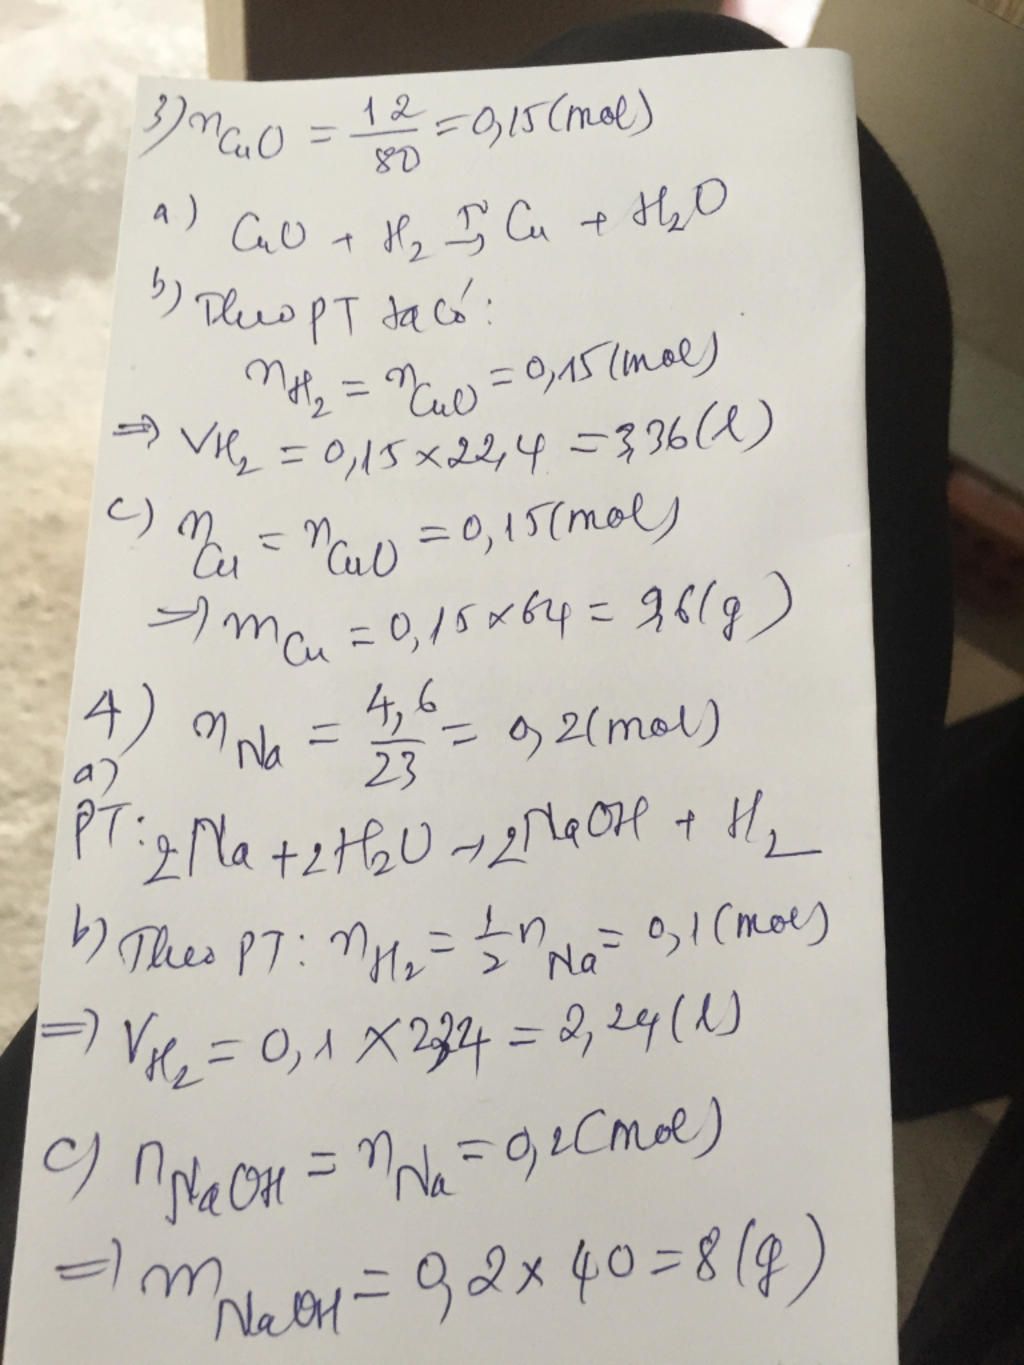 3) nCuO = 12/80 = 0,15 (mol)
a) CuO + H2 t°→ Cu + H2O
b) Theo PT ta có:
nH2 = nCuO = 0,15 (mol)
=> VH2 = 0,15 × 22,4 = 3,36 (l)
c) nCu = nCuO = 0,15 (mol)
=> mCu = 0,15 × 64 = 9,6 (g)
4) nNa = 4,6/23 = 0,2 (mol)
a)
PT: 2Na + 2H2O → 2NaOH + H2
b) Theo PT: nH2 = 1/2 nNa = 0,1 (mol)
=> VH2 = 0,1 × 22,4 = 2,24 (l)
c) nNaOH = nNa = 0,2 (mol)
=> mNaOH = 0,2 × 40 = 8 (g)